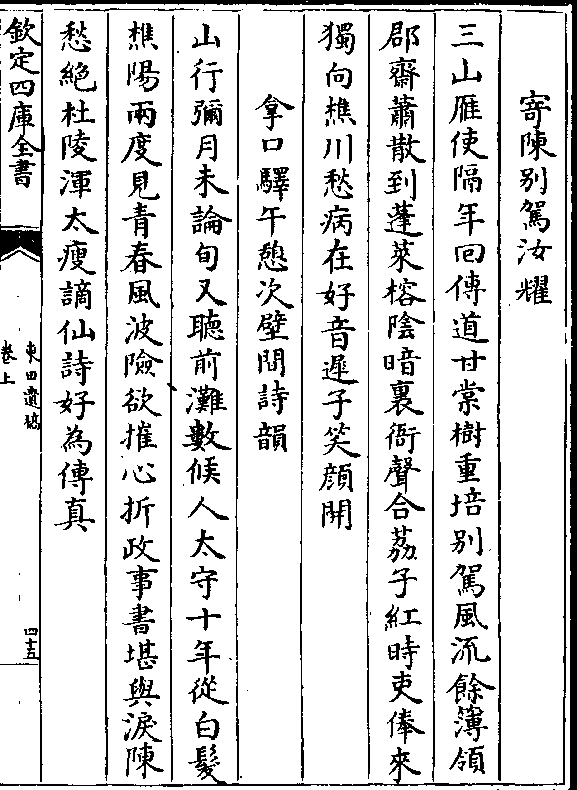 寄陳别駕汝耀
三山雁使隔年回傳道甘棠樹重培别駕風流餘簿領
郡齋蕭散到蓬萊榕陰暗裏衙聲合荔子紅時吏俸來
獨向樵川愁病在好音遲子笑顔開
拿口驛午憇次壁間詩韻
山行彌月未論旬又聴前灘數候人太守十年從白髪
樵陽兩度見青春風波險欲摧心折政事書堪與淚陳
愁絶杜陵渾太瘦謫仙詩好為傳真
欽定四庫全書
東田遺稿
卷上
四十五